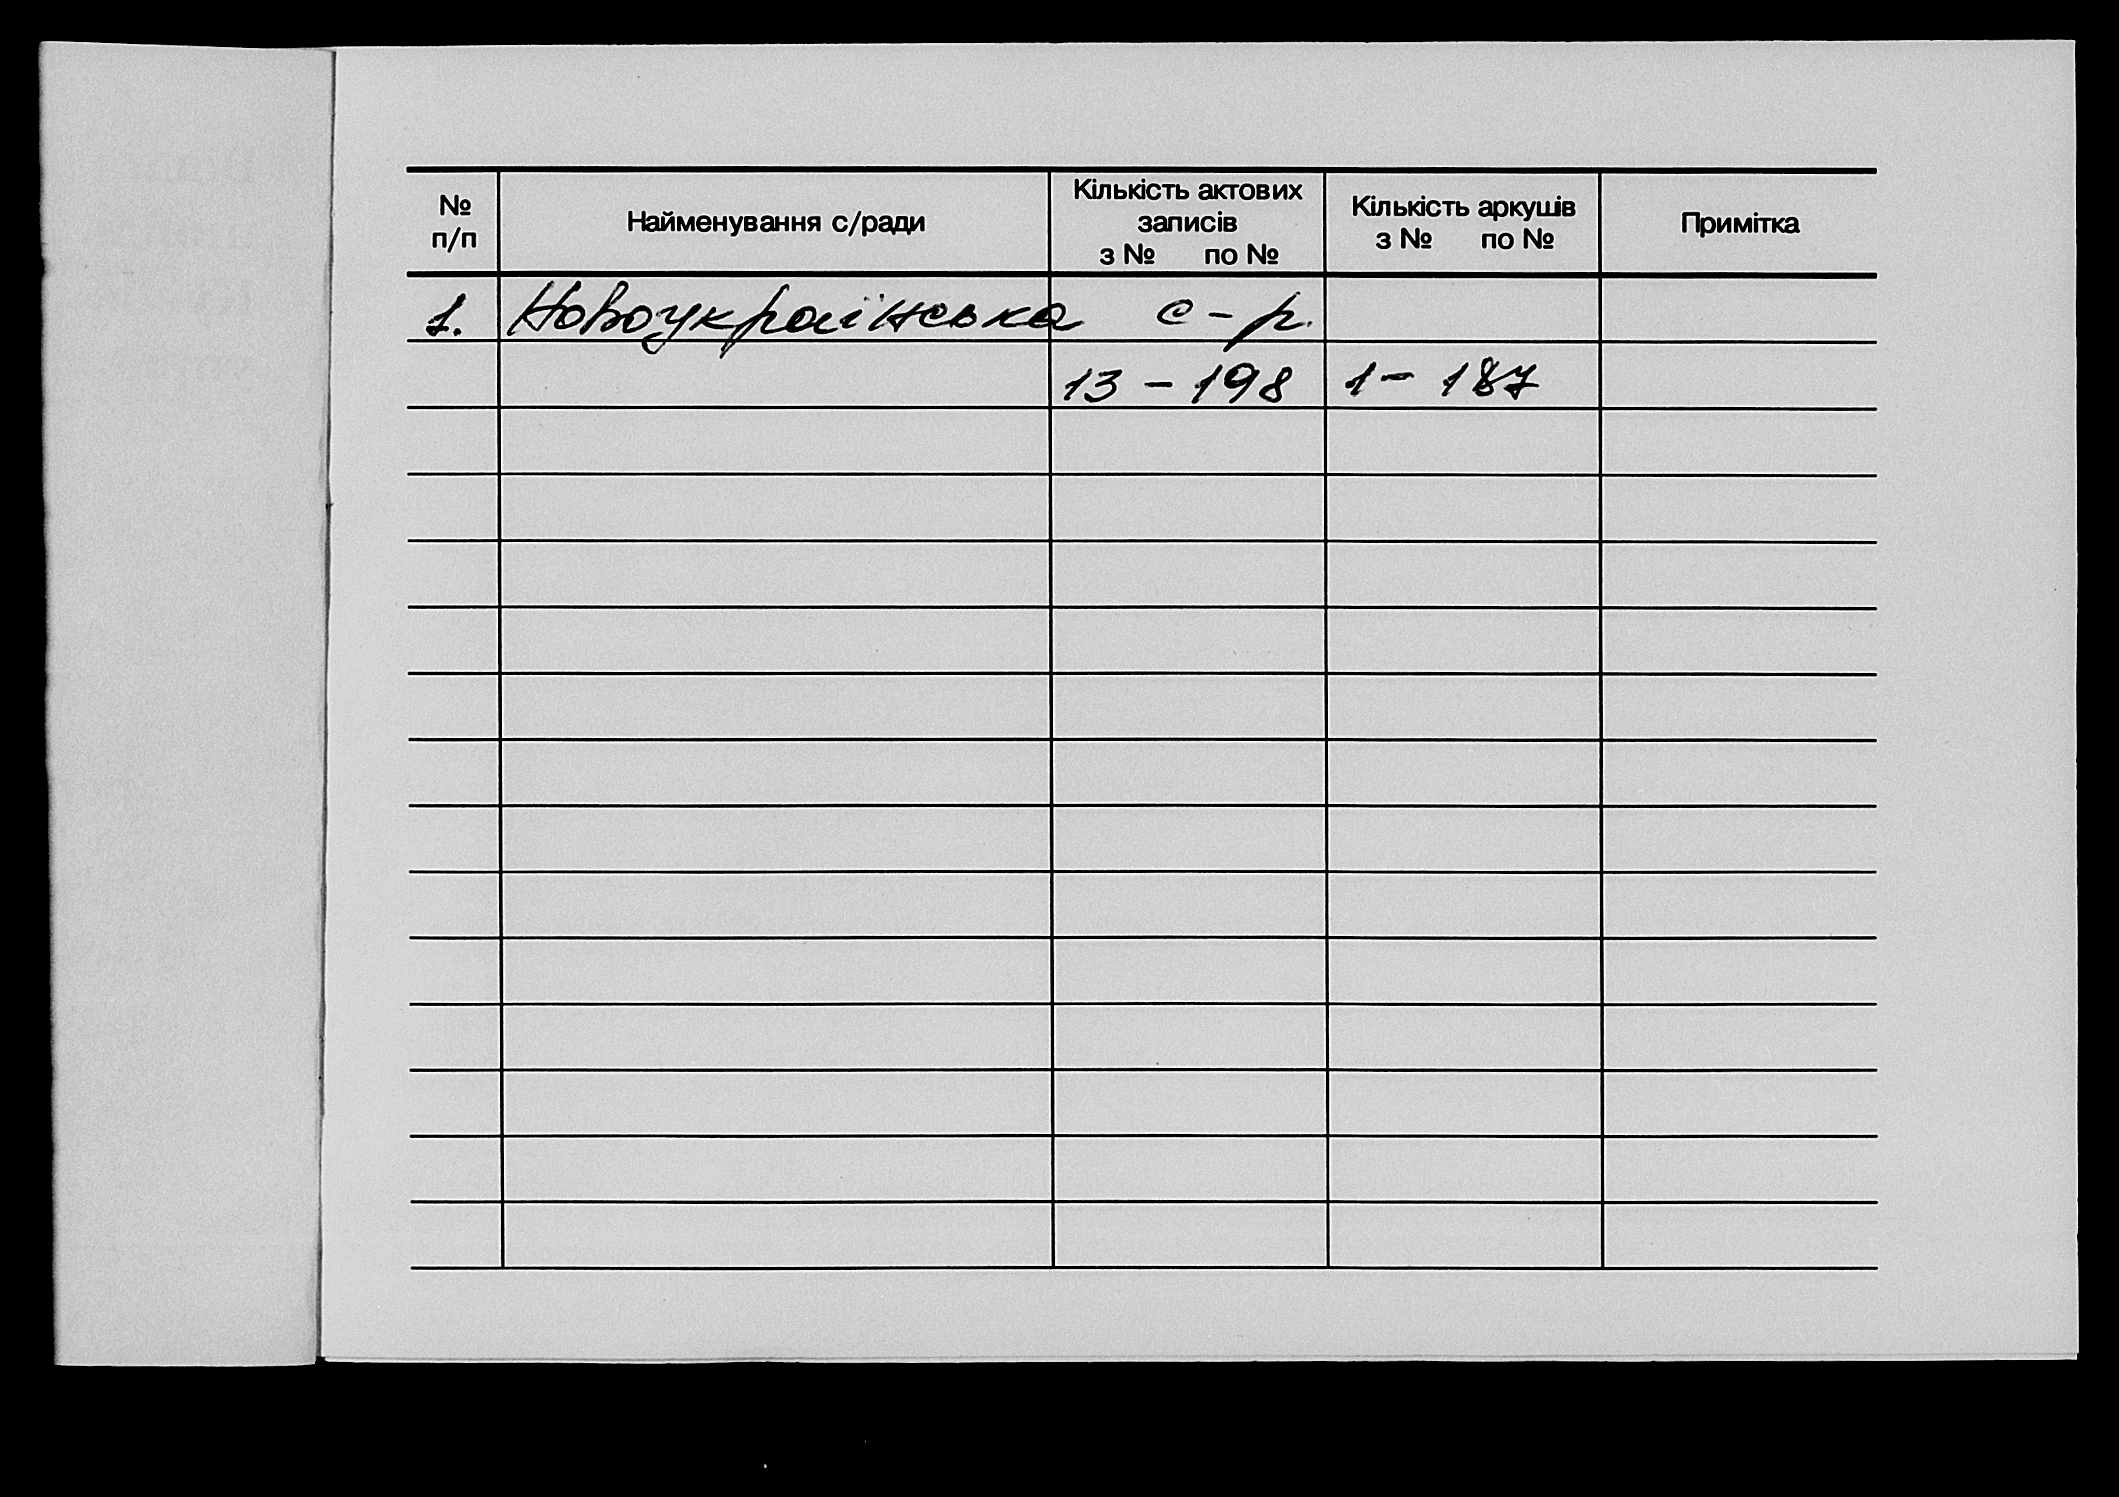 № п/п Найменування с/ради Кількість актових записів з № по № Кількість аркушів з № по № Примітка
1. Новоукраїнська с-р.
13 - 198 1 - 187